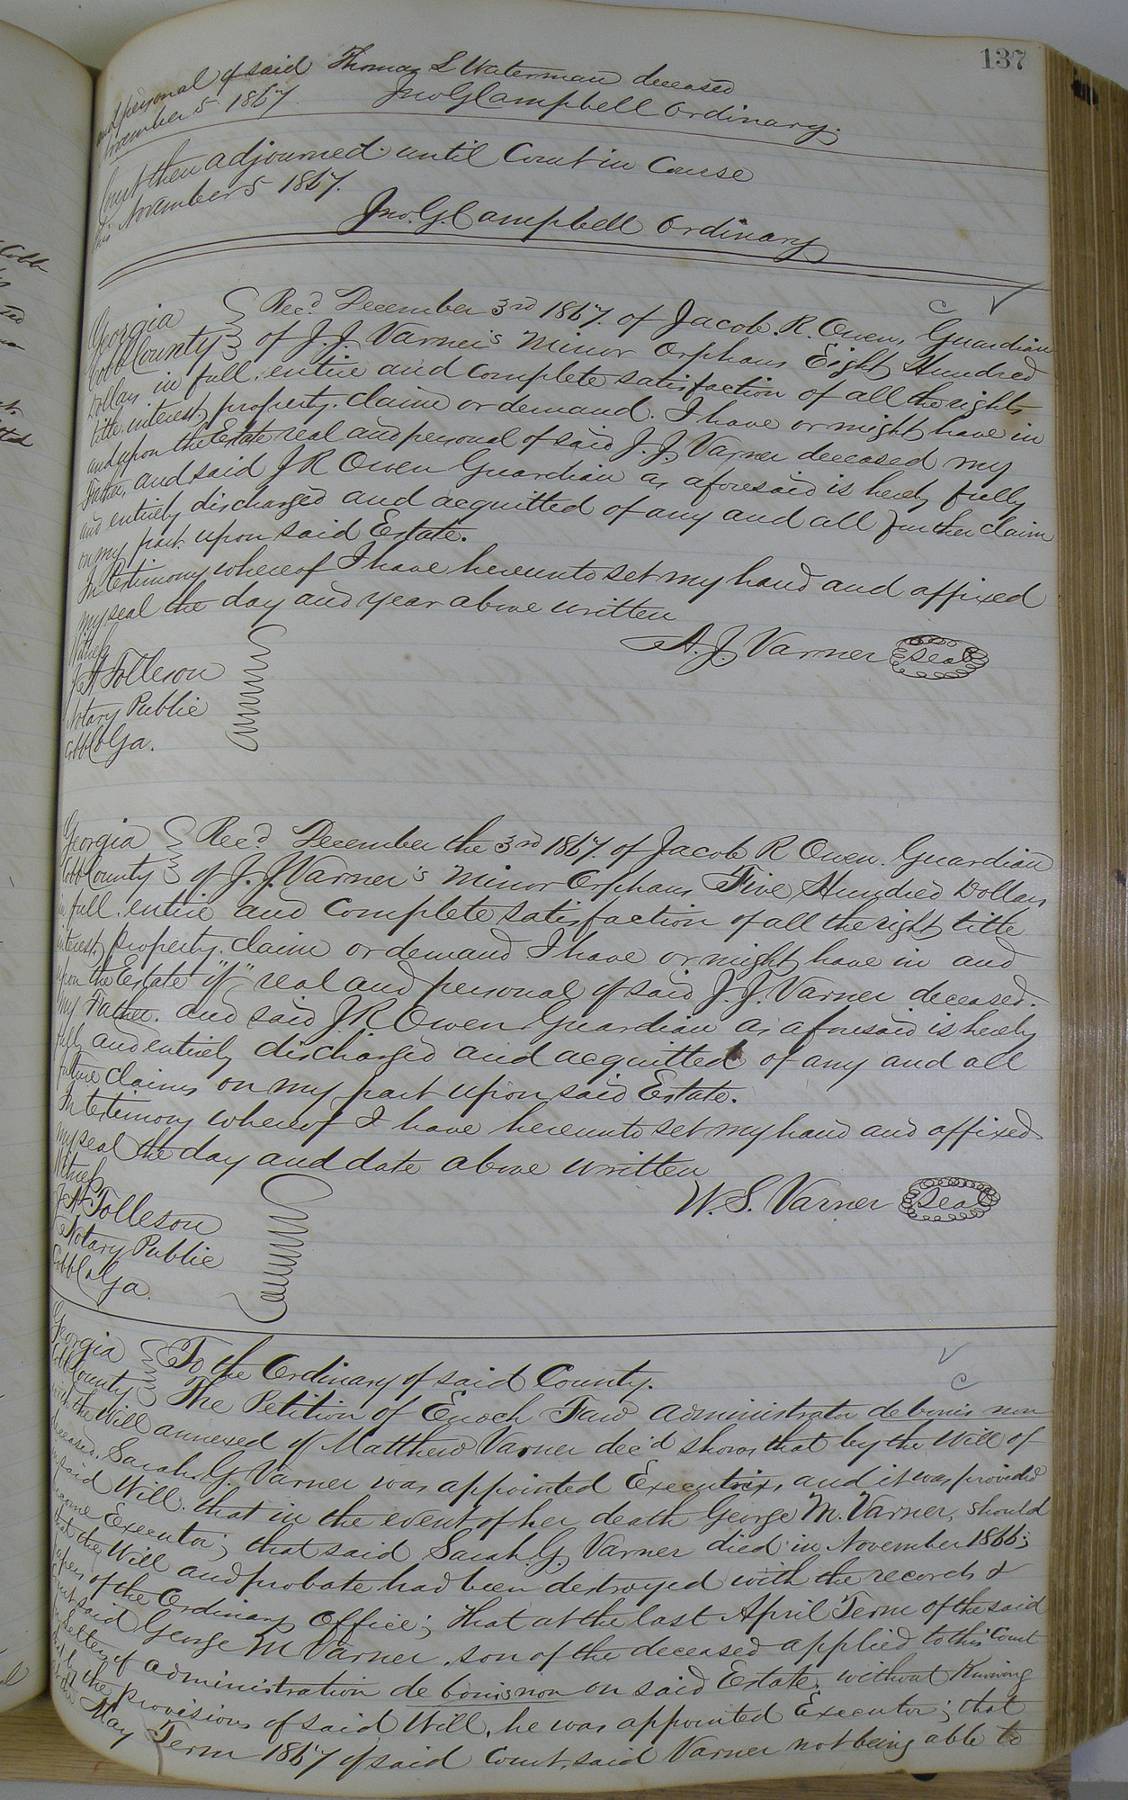 137
and personal of said Thomas L Waterman deceased
November 5 1867. Jno G Campbell Ordinary.
Court then adjourned until Court in Course
this November 5 1867.
Jno. G. Campbell Ordinary
Georgia } Rec.d December 3rd 1867. of Jacob. R. Owen, Guardian
Cobb County } of J. J. Varner's Minor Orphans Eight Hundred
Dollars in full, entire and complete satisfaction of all the right,
title, interest, property, claim or demand. I have or might have in
and upon the Estate real and personal of said J. J. Varner deceased my
Father, and said J R Owen Guardian as aforesaid is hereby fully
and entirely discharged and acquitted of any and all further claim
on my part upon said Estate.
In testimony whereof I have hereunto set my hand and affixed
my seal the day and year above written
A. J. Varner Seal
Witness
A Tolleson
Notary Public
Cobb Co Ga.
Georgia } Rec.d December the 3rd 1867. of Jacob R Owen. Guardian
Cobb County } of J. J. Varner's Minor Orphans Five Hundred Dollars
in full, entire and complete satisfaction of all the right title
interest, property, claim or demand I have or might have in and
upon the Estate "of" real and personal of said J. J. Varner deceased.
my Father. and said J. R. Owen Guardian as aforesaid is hereby
fully and entirely discharged and acquitted of any and all
future claims on my part upon said Estate.
In testimony whereof I have hereunto set my hand and affixed
my seal the day and date above written
W. S. Varner Seal
Witness
A Tolleson
Notary Public
Cobb Co Ga.
Georgia } To the Ordinary of said County.
Cobb County } The Petition of Enoch Faw administrator de bonis non
with the Will annexed of Matthew Varner dec'd shows that by the Will of
deceased, Sarah. G. Varner was appointed Executrix, and it was provided
in said Will. that in the event of her death George M. Varner, should
become Executor; that said Sarah. G. Varner died in November 1866;
that the Will and probate had been destroyed with the records &
papers of the Ordinary Office; that at the last April Term of the said
Court said George M Varner, son of the deceased applied to this Court
for letters of administration de bonis non on said Estate, without knowing
that by the provisions of said Will, he was appointed Executor; that
May Term 1867 of said Court, said Varner not being able to